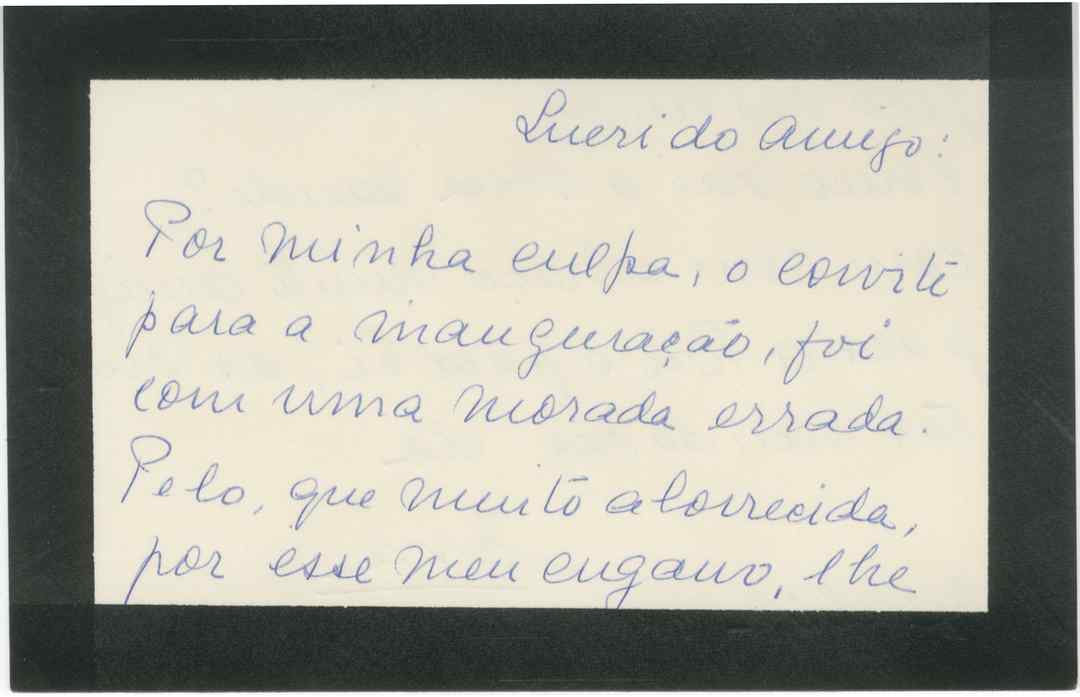 Querido Amigo:
Por minha culpa, o convite
para a inauguração, foi
com uma morada errada.
Pelo, que muito aborrecida,
por esse meu engano, lhe